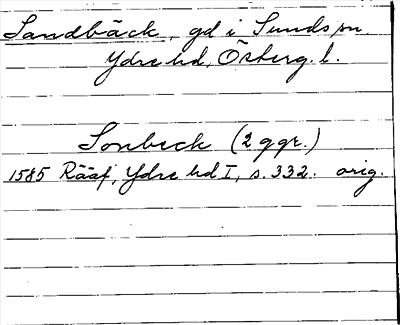 Sandbäck, gd i Sunds sn.
Ydre hd, Österg. l.
Sonbeck (2 ggr.)
1585 Rääf, Ydre hd I, s. 332. orig.